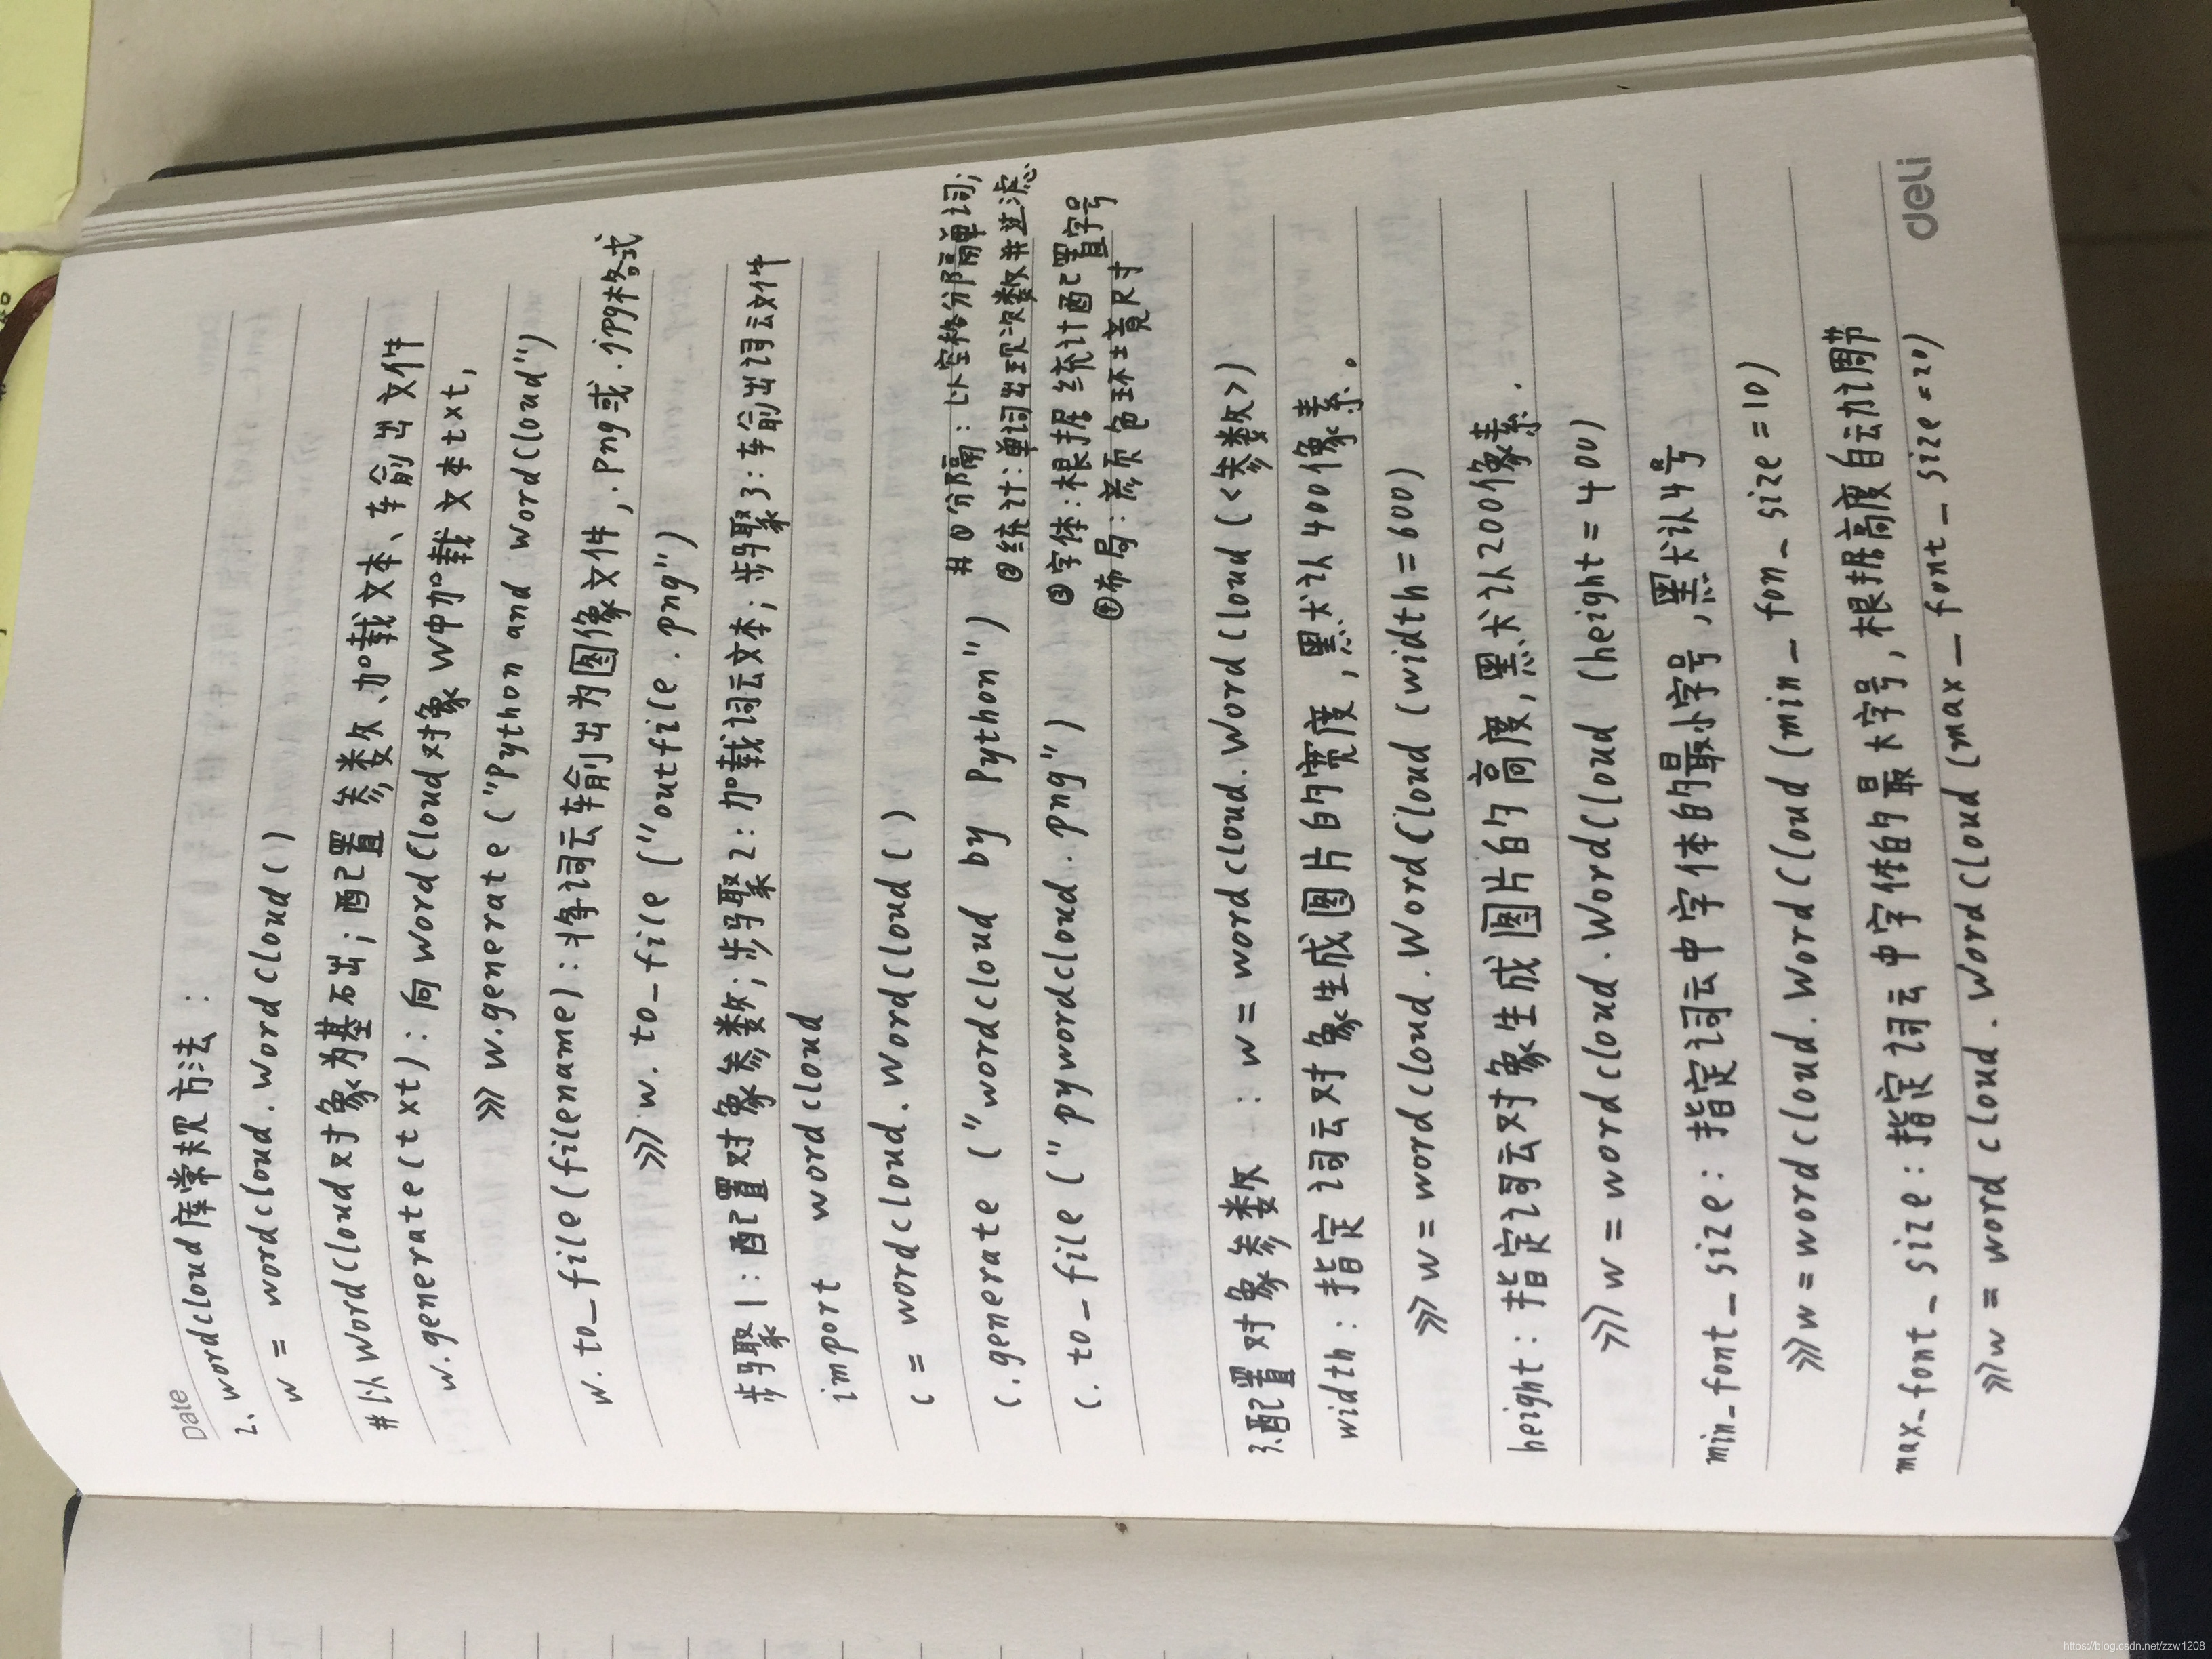 Date
2、wordcloud库常规方法：
w = wordcloud.WordCloud()
#以WordCloud对象为基础；配置参数、加载文本、输出文件
w.generate(txt)：向WordCloud对象w中加载文本txt,
>>> w.generate("Python and WordCloud")
w.to_file(filename)：将词云输出为图像文件,.png或.jpg格式
>>> w.to_file("outfile.png")
步骤1：配置对象参数；步骤2：加载词云文本；步骤3：输出词云文件
import wordcloud
c = wordcloud.WordCloud()
c.generate("wordcloud by Python")
c.to_file("pywordcloud.png")
#①分隔：以空格分隔单词；
②统计：单词出现次数并过滤
③字体：根据统计配置字号
④布局：颜色环境尺寸
3.配置对象参数：w = wordcloud.WordCloud(<参数>)
width：指定词云对象生成图片的宽度,默认400像素。
>>> w = wordcloud.WordCloud(width=600)
height：指定词云对象生成图片的高度,默认200像素.
>>> w = wordcloud.WordCloud(height=400)
min_font_size：指定词云中字体的最小字号,默认4号
>>> w = wordcloud.WordCloud(min_fon_size=10)
max_font_size：指定词云中字体的最大字号,根据高度自动调节
>>> w = wordcloud.WordCloud(max_font_size=20)
deli
https://blog.csdn.net/zzw1208